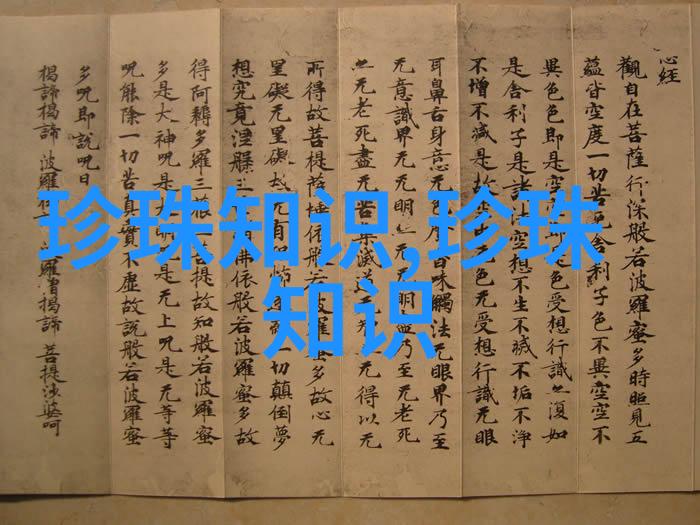 心经
觀自在菩薩行深般若波羅蜜多時照見五
蘊皆空度一切苦厄舍利子色不異空空不
異色色即是空空即是色受想行識亦復如
是舍利子是諸法空想不生不滅不垢不淨
不增不減是故无色无受想行識无眼
耳鼻舌身意无香味觸法无眼界乃至
无意識界无无明亦无无明盡乃至无老死
亦无老死盡无苦集滅道无得以无
所得故菩提薩埵依般若波羅蜜多故心无
罣礙无罣礙故无有怖遠一切顛倒夢
想究竟涅槃三佛依般若波羅蜜多故
得阿耨多羅三藐菩提故知般若波羅蜜
多是大神呪是明呪是无上呪是无等等
呪能除一切苦真實不虛故說般若波羅蜜
多呪即說呪曰
揭諦揭諦 波羅 波羅僧揭諦 菩提莎婆呵
珍珠知识,珍珠
知识